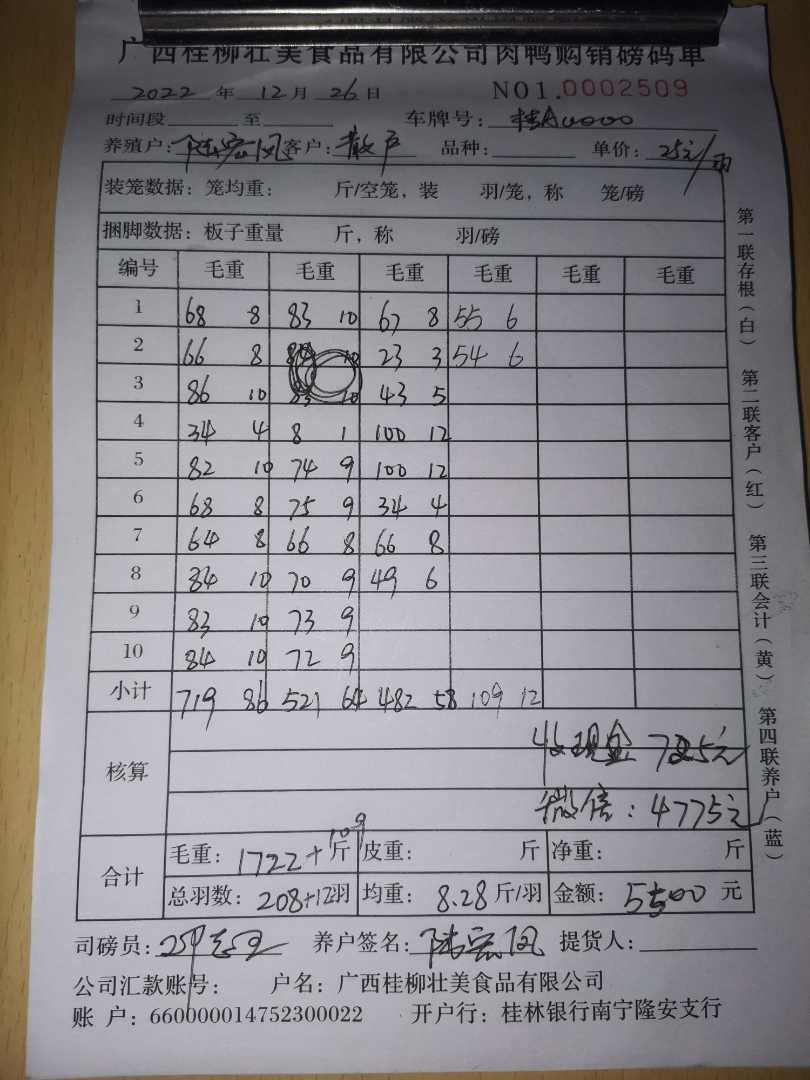 广西桂柳壮美食品有限公司肉鸭购销磅码单
2022 年 12 月 26 日 NO1.0002509
时间段 至 车牌号: 桂A0000
养殖户: 陆宏凤 客户: 散户 品种: 单价: 25元/羽
装笼数据: 笼均重: 斤/空笼, 装 羽/笼, 称 笼/磅
捆脚数据: 板子重量 斤, 称 羽/磅
编号 毛重 毛重 毛重 毛重 毛重 毛重
1 68 8 83 10 67 8 55 6
2 66 8 10 23 3 54 6
3 86 10 83 10 43 5
4 34 4 8 1 100 12
5 82 10 74 9 100 12
6 68 8 75 9 34 4
7 64 8 66 8 66 8
8 84 10 70 9 49 6
9 83 10 73 9
10 84 10 72 9
小计 719 86 521 64 482 58 109 12
核算 收现金 725元
微信: 4775元
合计 毛重: 1722+109 斤 皮重: 斤 净重: 斤
总羽数: 208+12羽 均重: 8.28 斤/羽 金额: 5500 元
司磅员: 养户签名: 陆宏凤 提货人:
公司汇款账号: 户名: 广西桂柳壮美食品有限公司
账 户: 660000014752300022 开户行: 桂林银行南宁隆安支行
第一联存根(白) 第二联客户(红) 第三联会计(黄) 第四联养户(蓝)